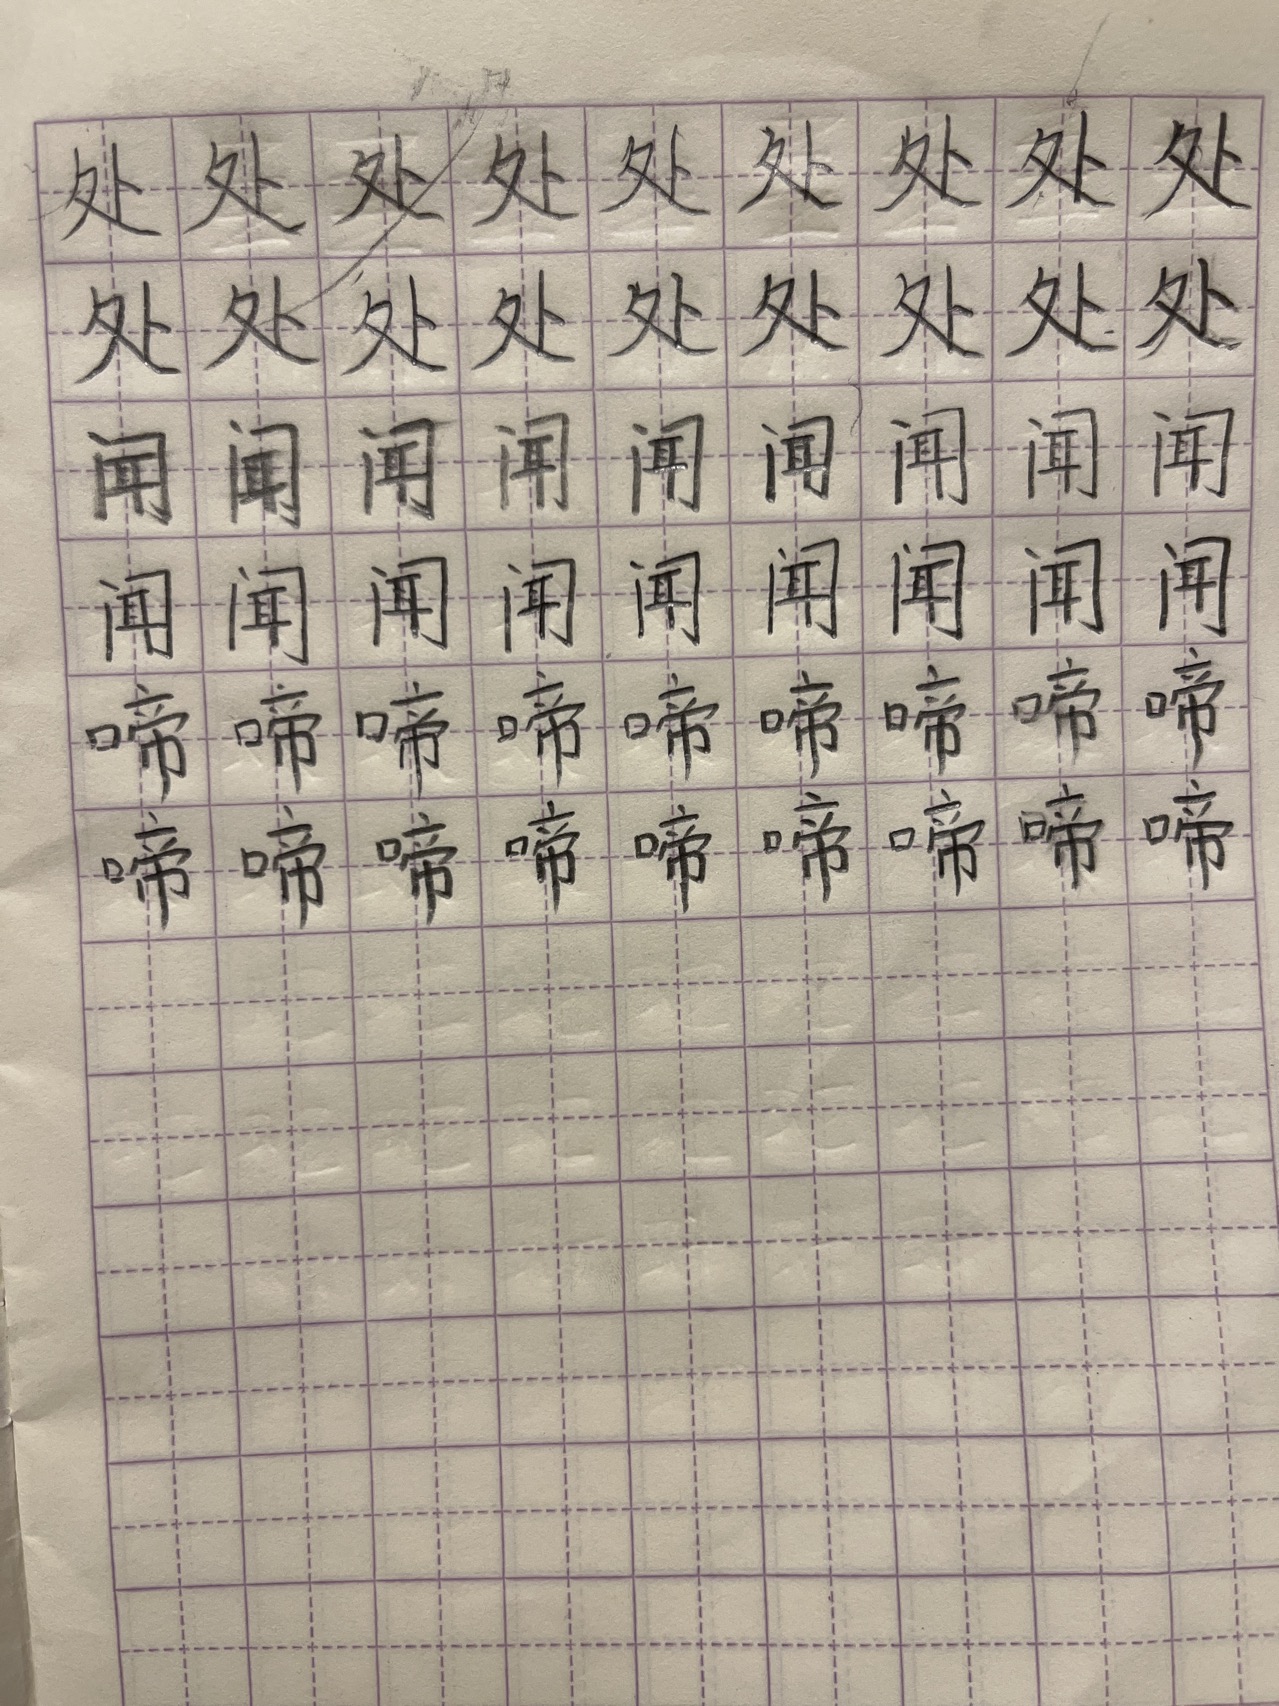 处处处处处处处处处
处处处处处处处处处
闻闻闻闻闻闻闻闻闻
闻闻闻闻闻闻闻闻闻
啼啼啼啼啼啼啼啼啼
啼啼啼啼啼啼啼啼啼